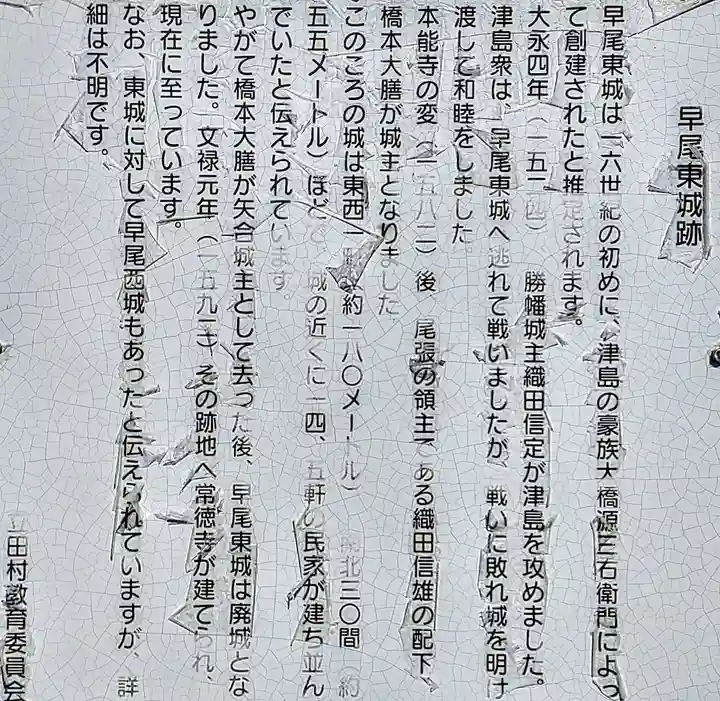 早尾東城跡
早尾東城は一六世紀の初めに、津島の豪族大橋源三右衛門によっ
て創建されたと推定されます。
大永四年（一五二四）、勝幡城主織田信定が津島を攻めました。
津島衆は、早尾東城へ逃れて戦いましたが、戦いに敗れ城を明け
渡して和睦をしました。
本能寺の変（一五八二）後、尾張の領主である織田信雄の配下、
橋本大膳が城主となりました。
このころの城は東西一 約一八〇メートル） 南北三〇間（約
五五メートル）ほどで、城の近くに一四、五軒の民家が建ち並ん
でいたと伝えられています。
やがて橋本大膳が矢合城主として去った後、早尾東城は廃城とな
りました。文禄元年（一五九二）その跡地へ常徳寺が建てられ、
現在に至っています。
なお、東城に対して早尾西城もあったと伝えられていますが、詳
細は不明です。
立田村教育委員会